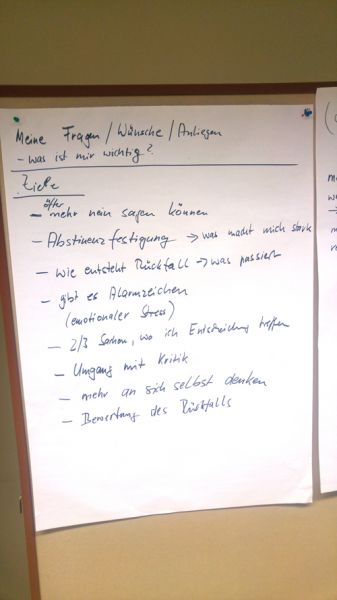 Meine Fragen / Wünsche / Anliegen
- was ist mir wichtig?
Ziele
öfter
- mehr nein sagen können
- Abstinenzfestigung -> was macht mich stark
- wie entsteht Rückfall -> was passiert
- gibt es Alarmzeichen
(emotionaler Stress)
- 2/3 Sachen, wo ich Entscheidung treffen
- Umgang mit Kritik
- mehr an sich selbst denken
- Bewertung des Rückfalls